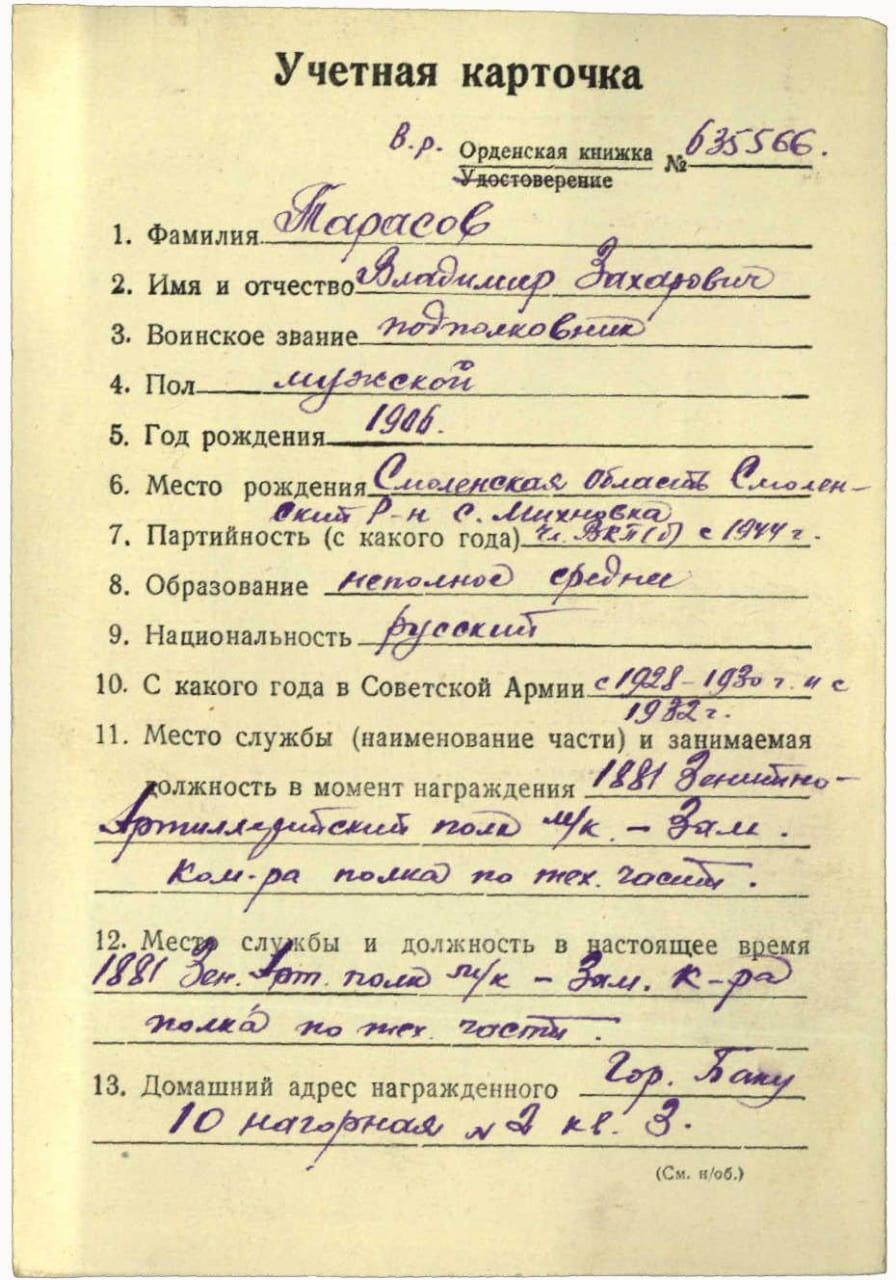 Учетная карточка
в.р. Орденская книжка № 635566.
Удостоверение
1. Фамилия Тарасов
2. Имя и отчество Владимир Захарович
3. Воинское звание подполковник
4. Пол мужской
5. Год рождения 1906.
6. Место рождения Смоленская область Смолен-
ский р-н с. Михновка
7. Партийность (с какого года) чл. ВКП(б) с 1944 г.
8. Образование неполное среднее
9. Национальность русский
10. С какого года в Советской Армии с 1928-1930 г. и с
1932 г.
11. Место службы (наименование части) и занимаемая
должность в момент награждения 1881 Зенитно-
Артиллерийский полк м/к. - Зам.
Ком-ра полка по тех. части.
12. Место службы и должность в настоящее время
1881 Зен. Арт. полк м/к - Зам. к-ра
полка по тех. части.
13. Домашний адрес награжденного Гор. Баку
10 нагорная № 2 кв. 3.
(См. н/об.)